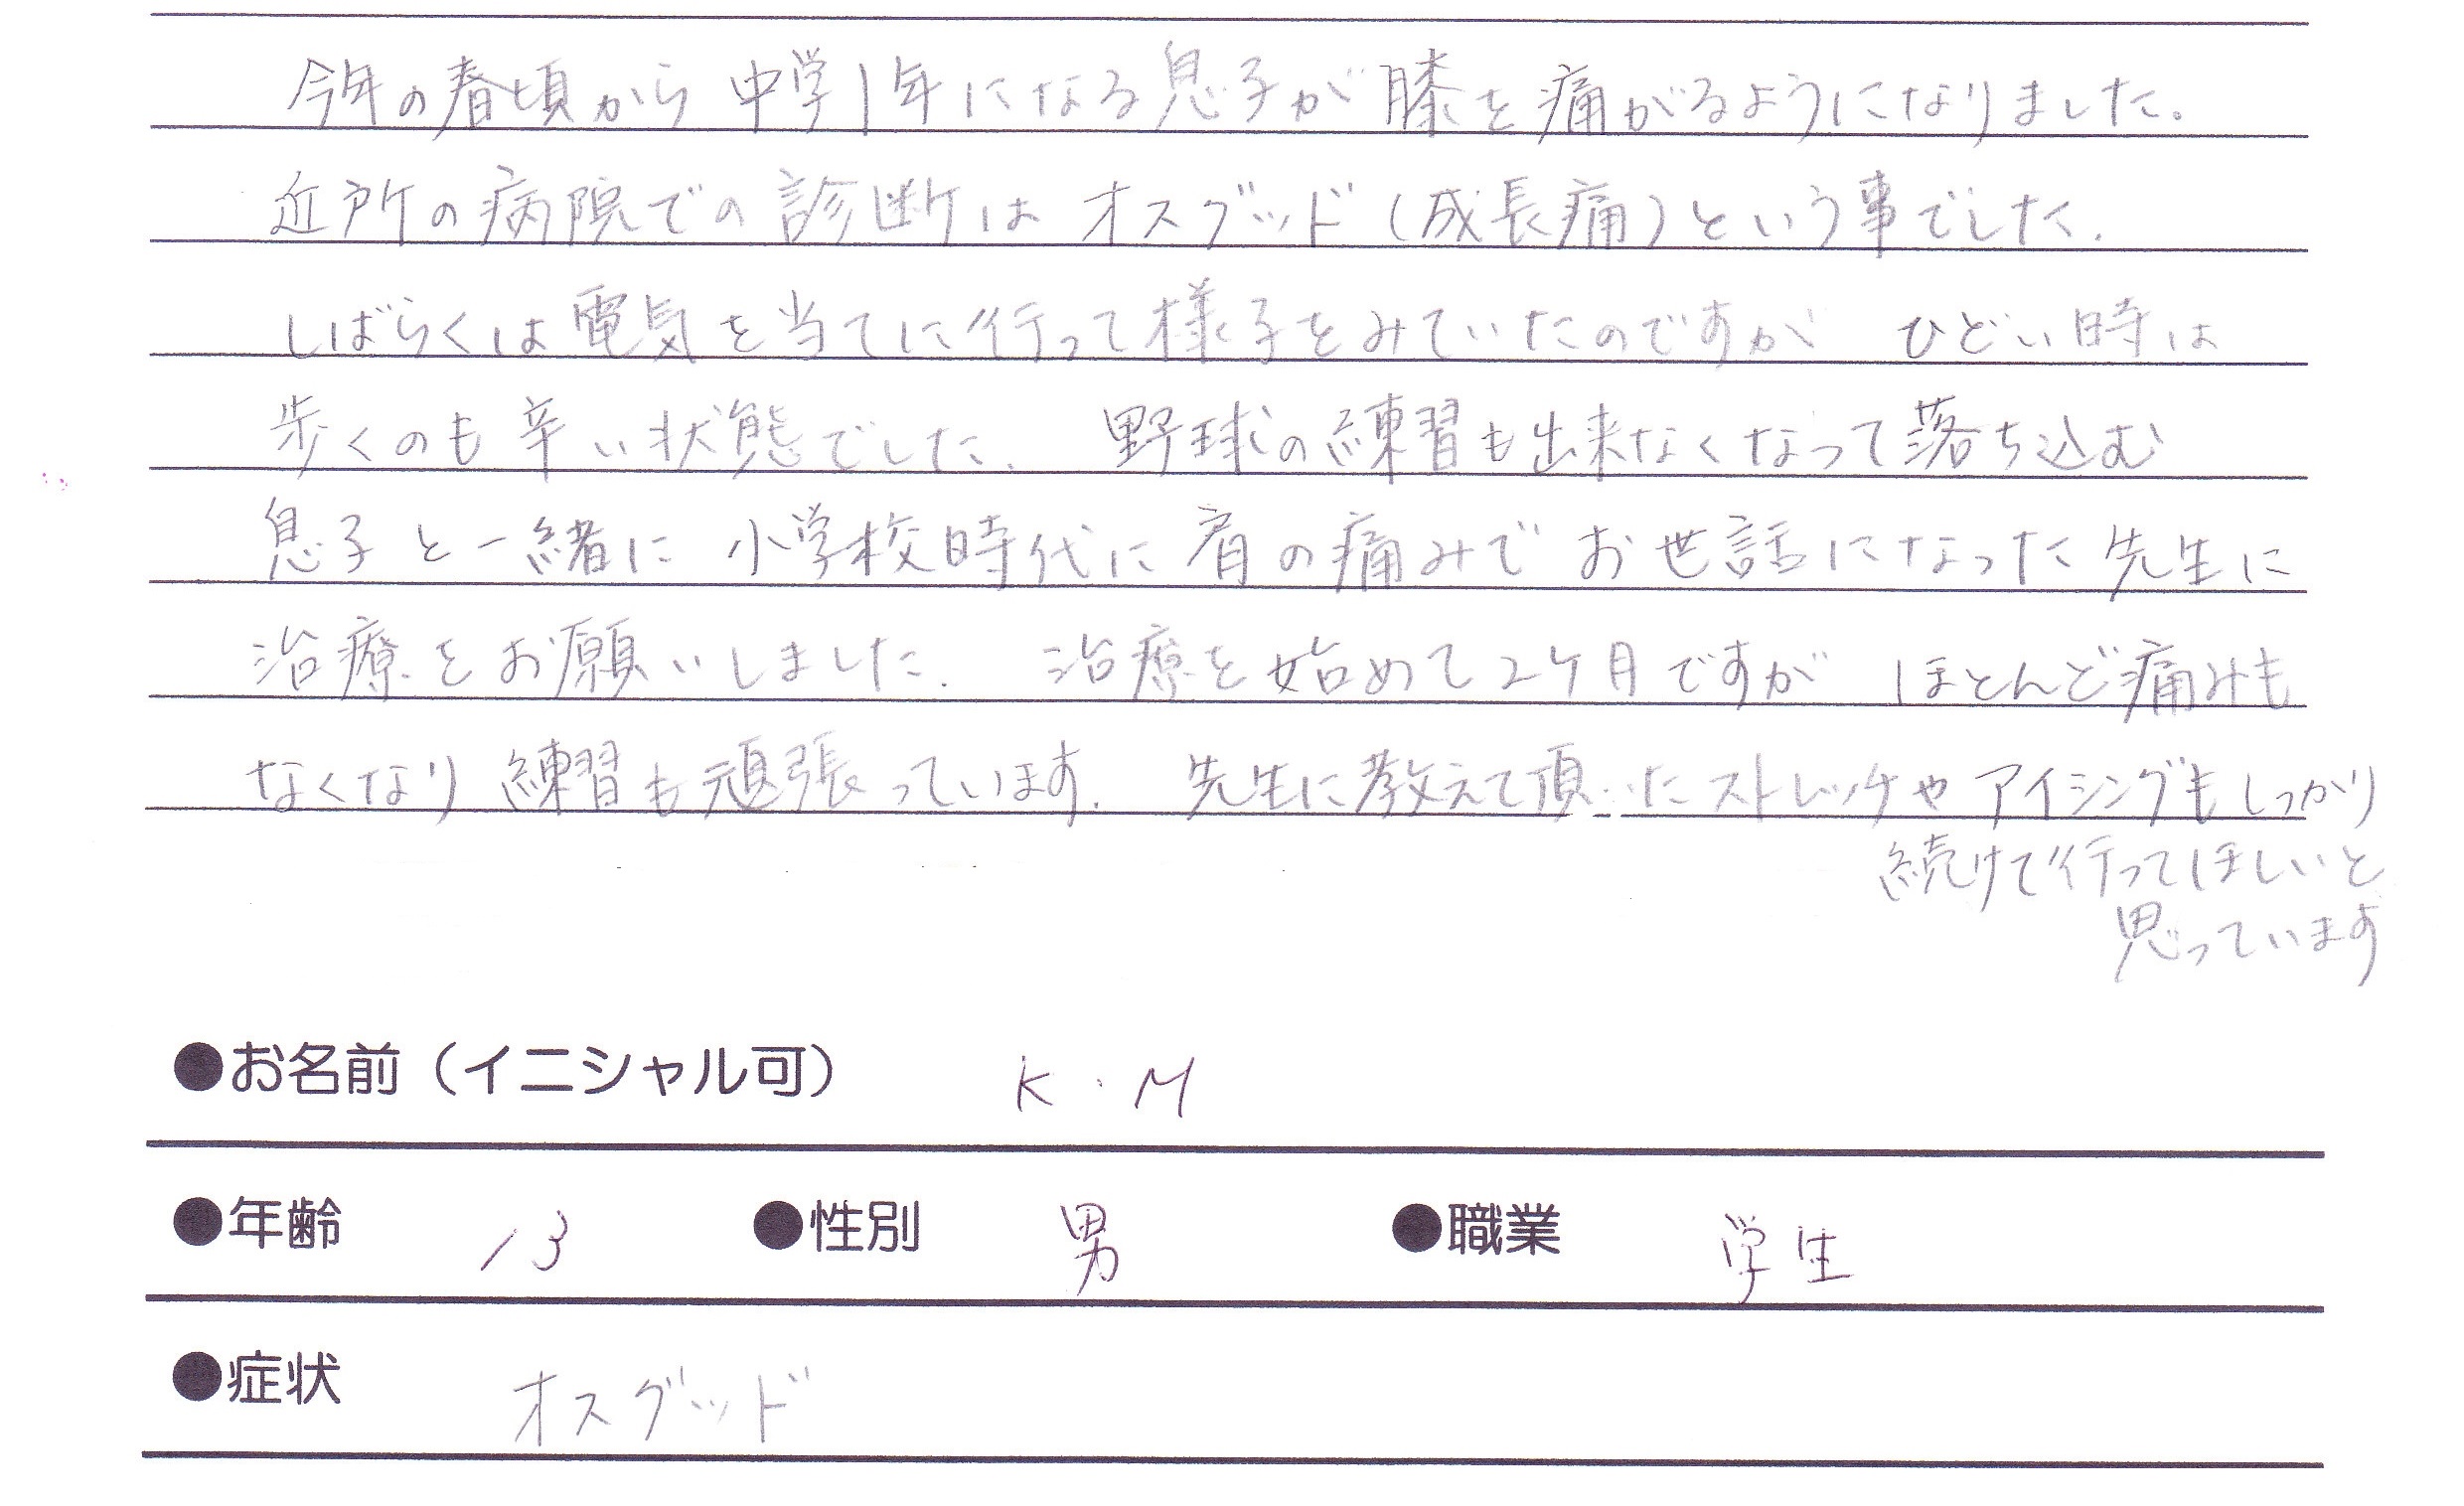 今年の春頃から中学1年になる息子が膝を痛がるようになりました。
近所の病院での診断はオスグッド(成長痛)という事でした。
しばらくは電気を当てに行って様子をみていたのですが ひどい時は
歩くのも辛い状態でした。 野球の練習も出来なくなって落ち込む
息子と一緒に小学校時代に肩の痛みでお世話になった先生に
治療をお願いしました。 治療を始めて2ケ月ですが ほとんど痛みも
なくなり練習も頑張っています。 先生に教えて頂いたストレッチやアイシングもしっかり
続けて行ってほしいと
思っています
●お名前（イニシャル可） K・M
●年齢 13 ●性別 男 ●職業 学生
●症状 オスグッド